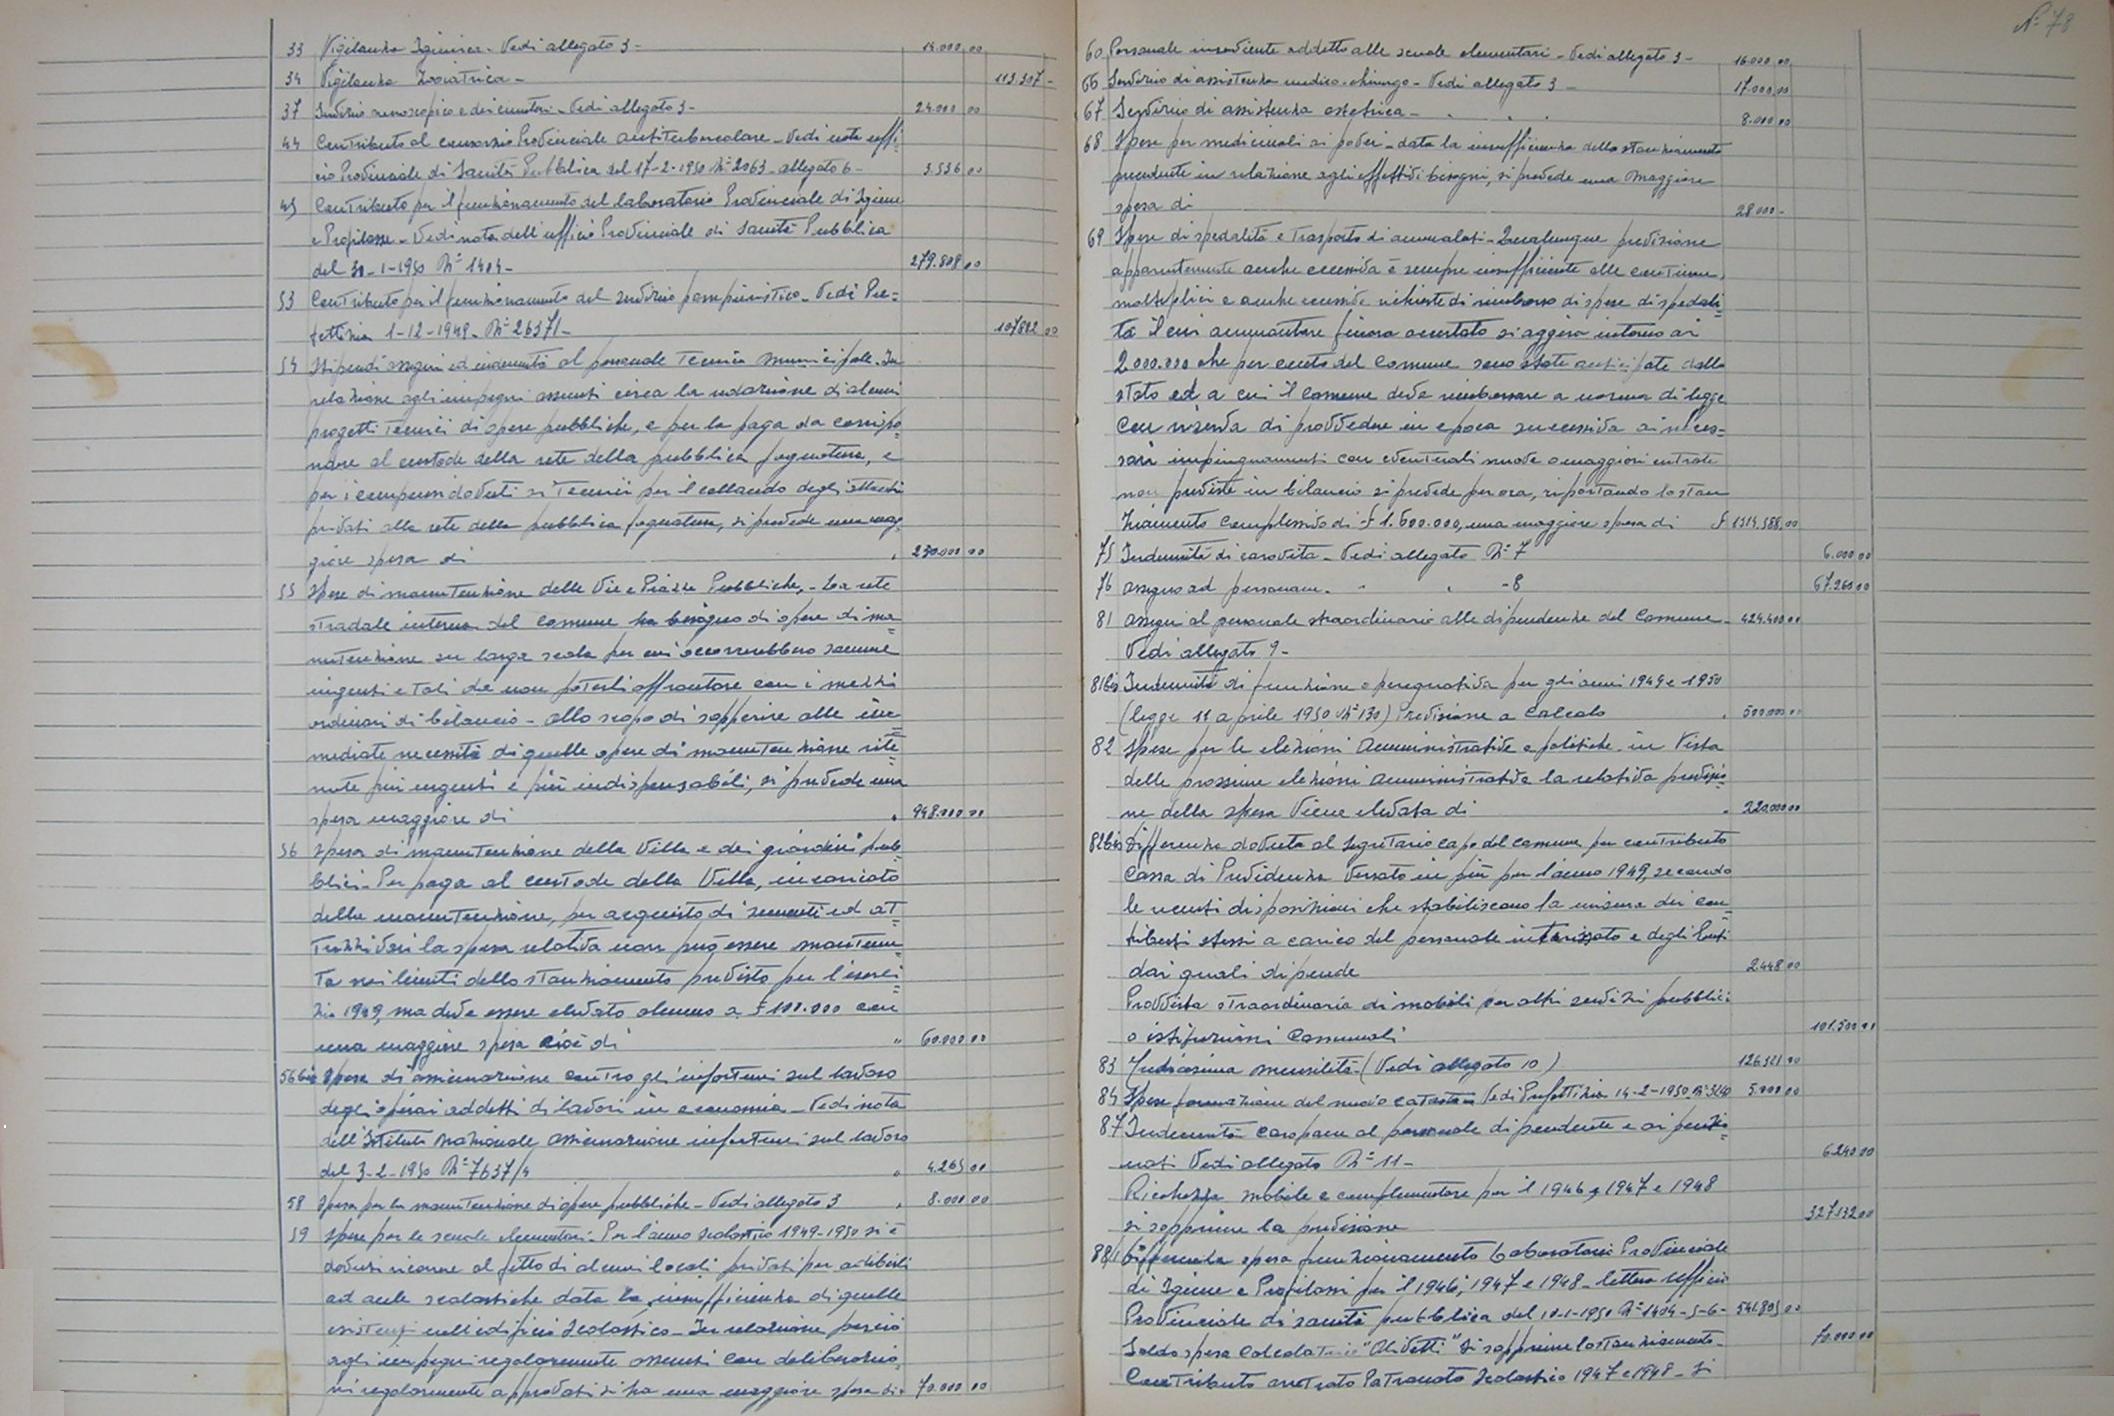 33 Vigilanza Igienica - Vedi allegato 3 - 14.000,00
34 Vigilanza Zooiatrica - 113.307 -
37 Servizio necroscopico e dei cimiteri - Vedi allegato 3 - 24.000,00
44 Contributo al consorzio Provinciale antitubercolare - Vedi nota uffi=
cio Provinciale di Sanità Pubblica del 17-2-1950 N° 2063 - allegato 6 - 3.536,00
45 Contributo per il funzionamento del laboratorio Provinciale di Igiene
e Profilassi - Vedi nota dell'ufficio Provinciale di Sanità Pubblica
del 30-1-1950 N° 1404 - 279.808,00
53 Contributo per il funzionamento del servizio pompieristico - Vedi Pre=
fettizia 1-12-1948 - N° 26371 - 107882,00
54 Stipendi assegni ed indennità al personale Tecnico municipale - In
relazione agli impegni assunti circa la redazione di alcuni
progetti Tecnici di opere pubbliche, e per la paga da corrispo=
ndere al custode della rete della pubblica fognatura, e
per i compensi dovuti ai Tecnici per il collaudo degli attacchi
privati alla rete della pubblica fognatura, si prevede una mag=
giore spesa di " 230.000,00
55 Spese di manutenzione delle Vie e Piazze Pubbliche, - La rete
stradale interna del Comune ha bisogno di opere di ma=
nutenzione su larga scala per cui occorrerebbero somme
ingenti e Tali da non poterli affrontare con i mezzi
ordinari di bilancio - allo scopo di sopperire alle im=
mediate necessità di quelle opere di manutenzione rite=
nute più urgenti e più indispensabili, si prevede una
spesa maggiore di " 948.000,00
56 Spesa di manutenzione della Villa e dei giardini pub=
blici - Per paga al custode della Villa, incaricato
della manutenzione, per acquisto di sementi ed at=
trezzi vari la spesa relativa non può essere mantenu=
ta nei limiti dello stanziamento previsto per l'eserci=
zio 1949, ma deve essere elevato almeno a £ 100.000 con
una maggiore spesa cioè di " 60.000,00
56bis Spesa di assicurazione contro gli infortuni sul lavoro
degli operai addetti di lavori in economia - Vedi nota
dell'Istituto Nazionale assicurazione infortuni sul lavoro
del 3-2-1950 N° 7637/4 " 4.265,00
58 Spesa per la manutenzione di opere pubbliche - Vedi allegato 3 " 8.000,00
59 Spese per le scuole elementari - Per l'anno scolastico 1949-1950 si è
dovuti ricorrere al fitto di alcuni locali privati per adibirli
ad aule scolastiche data la insufficienza di quelle
esistenti nell'edificio scolastico - In relazione perciò
agli impegni regolarmente assunti con deliberazio=
ni regolarmente approvati si ha una maggiore spesa di " 70.000,00
N° 78
60 Personale inserviente addetto alle scuole elementari - Vedi allegato 3 - 16.000,00
66 Servizio di assistenza medico-chirurgo - Vedi allegato 3 - 17.000,00
67 Servizio di assistenza ostetrica - " " " 8.000,00
68 Spese per medicinali ai poveri - data la insufficienza dello stanziamento
precedente in relazione agli effettivi bisogni, si prevede una maggiore
spesa di 28.000 -
69 Spese di spedalità e Trasporto di ammalati - Qualunque previsione
apparentemente anche eccessiva è sempre insufficiente alle continue,
molteplici e anche eccessive richieste di rimborso di spese di spedali=
tà il cui ammontare finora accertato si aggira intorno ai
2.000.000 che per conto del Comune sono state anticipate dallo
stato ed a cui il Comune deve rimborsare a norma di legge
Con riserva di provvedere in epoca successiva ai neces=
sari impinguamenti con eventuali nuove o maggiori entrate
non previste in bilancio si prevede per ora, riportando lo stan
ziamento complessivo di £ 1.600.000, una maggiore spesa di £ 1314.588,00
75 Indennità di carovita - Vedi allegato N° 7 6.000,00
76 assegno ad personam - " " - 8 67.260,00
81 assegni al personale straordinario alle dipendenze del Comune - 424.400,00
Vedi allegato 9 -
81bis Indennità di funzione e perequativa per gli anni 1949 e 1950
(legge 11 aprile 1950 N° 130) Previsione a calcolo " 500.000,00
82 Spese per le elezioni Amministrative e politiche - in Vista
delle prossime elezioni amministrative la relativa previsio=
ne della spesa Viene elevata di " 220.000,00
82bis Differenza dovuta al Segretario capo del comune per contributo
Cassa di Previdenza Versato in più per l'anno 1949, secondo
le recenti disposizioni che stabiliscono la misura dei con=
tributi stessi a carico del personale interessato e degli Enti
dai quali dipende 2448,00
Provvista straordinaria di mobili per altri servizi pubblici
o istituzioni Comunali 101.500,00
83 Tredicesima mensilità - (Vedi allegato 10) 126.521,00
84 Spese formazione del nuovo catasto - Vedi Prefettizia 14-2-1950 N° 5.000,00
87 Indennità caropane al personale dipendente e ai pensio=
nati Vedi allegato N° 11 - 6.240,00
Ricchezza mobile e complementare per il 1946, 1947 e 1948
si sopprime la previsione 327.132,00
88/1 Differenza spesa funzionamento Laboratorio Provinciale
di Igiene e Profilassi per il 1946, 1947 e 1948 - lettera Ufficio
Provinciale di sanità pubblica del 10-1-1950 N° 1404-5-6 - 541.805,00
Saldo spesa Calcolatrice "Olivetti" si sopprime lo stanziamento - 70.000,00
Contributo arretrato Patronato Scolastico 1947 e 1948 - si